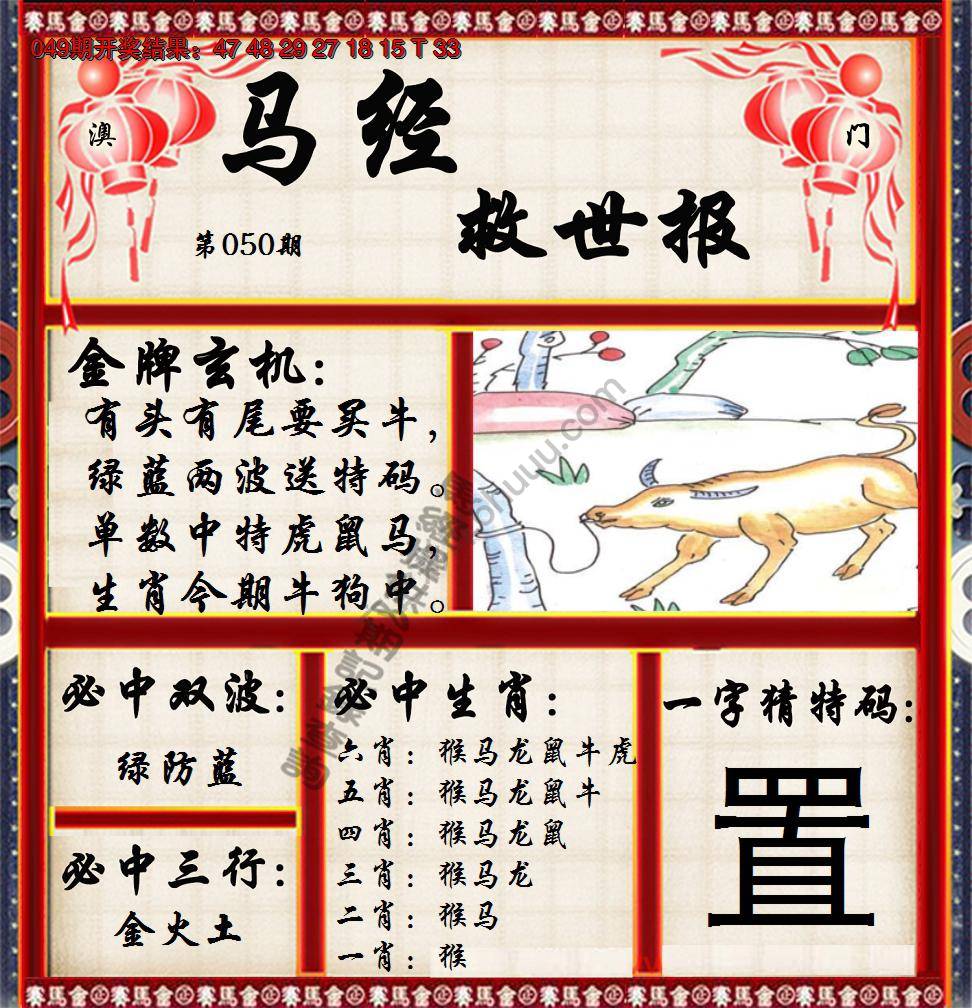 049期开奖结果：47 48 29 27 18 15 T 33
澳
门
马经
救世报
第050期
金牌玄机：
有头有尾要买牛，
绿蓝两波送特码。
单数中特虎鼠马，
生肖今期牛狗中。
必中双波：
绿防蓝
必中三行：
金火土
必中生肖：
六肖：猴马龙鼠牛虎
五肖：猴马龙鼠牛
四肖：猴马龙鼠
三肖：猴马龙
二肖：猴马
一肖：猴
一字猜特码：
置